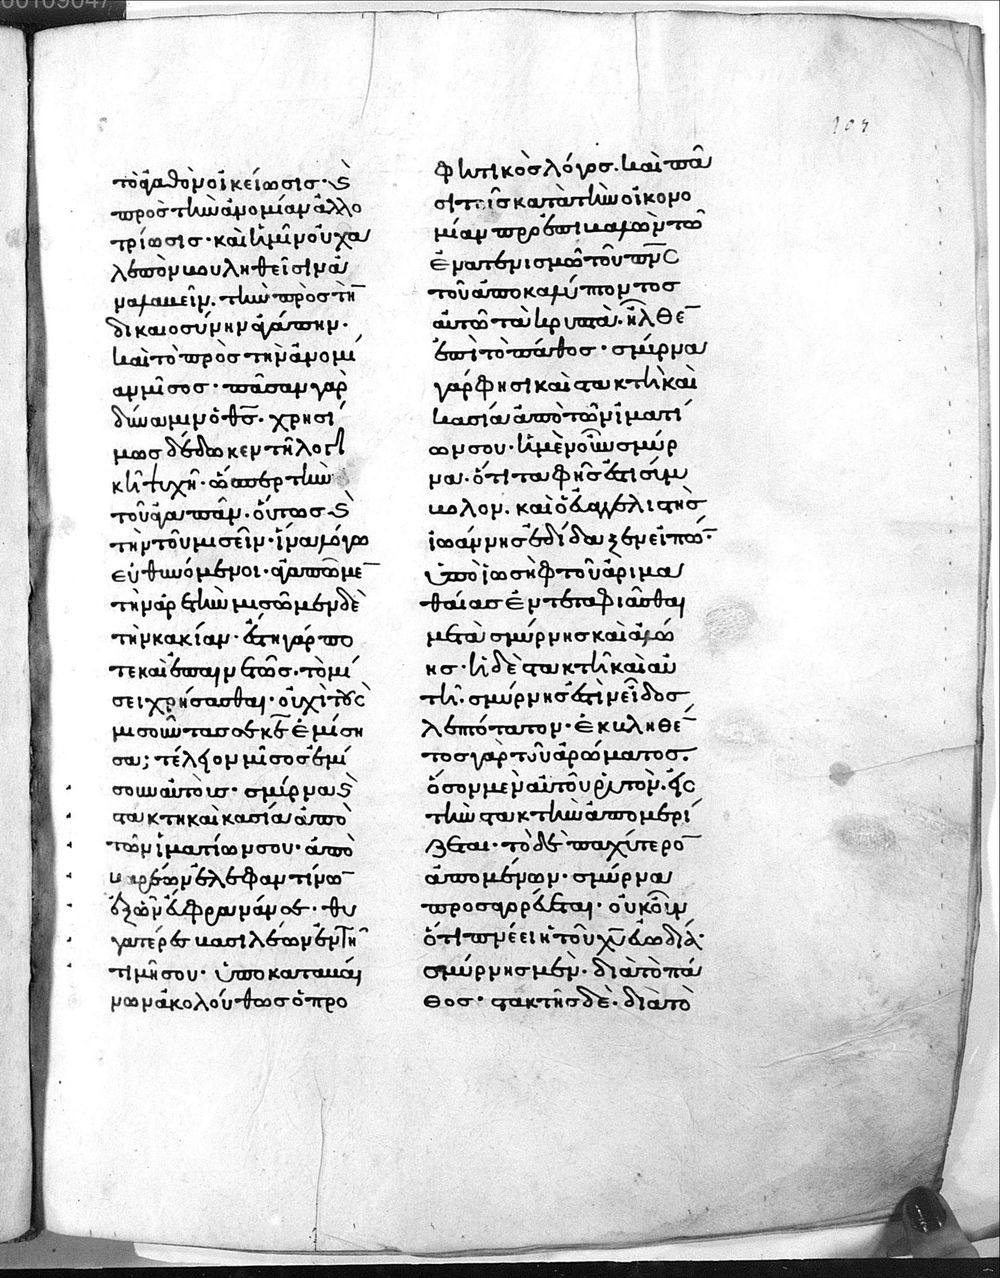 00109047
107
τὸ ἀγαθὸν οἰκείωσις· ϛ
πρὸς τὴν ἀνομίαν ἀλλο
τρίωσις· καὶ ἡμῖν οὐ χα
λεπὸν βουληθεῖσιν ἀ
ναλαβεῖν. τὴν πρὸς τὴ̅
δικαιοσύνην ἀγάπην·
καὶ τὸ πρὸς τὴν ἀνομί
αν μῖσος· πᾶσαν γὰρ
δύναμιν ὁ θς̅. χρησί
μως δέδωκεν τῇ λογι
κῇ ψυχῇ· ὥσπερ τὴν
τοῦ ἀγαπᾶν. οὕτως ϛ
τὴν τοῦ μισεῖν· ἵνα λόγω
εὐθυνόμενοι· ἀγαπῶμε̅
τὴν ἀρετὴν μισῶμεν δὲ
τὴν κακίαν· ἔστι γάρ πο
τε καὶ ἐπαινετῶς· τὸ μί
σει χρήσασθαι· οὐχὶ τοὺς
μισοῦντας σε κε̅ ἐμίση
σα; τέλειον μῖσος ἐμί
σουν αὐτούς· σμύρνα ϛ
στακτὴ καὶ κασία ἀπὸ
τῶν ἱματίων σου· ἀπὸ
βαρέων ἐλεφαντίνω̅
ἐξ ὧν εὔφρανάν σε· θυ
γατέρες βασιλέων ἐν τῆ
τιμῇ σου· ὑποκαταβαί
νων ἀκολούθως ὁ προ
φητικὸς λόγος. καὶ πᾶ
σι τοῖς κατὰ τὴν οἰκονο
μίαν προεπιβαλὼν τῶ
ἐνατενισμῶ τοῦ πνς̅
τοῦ ἀποκαλύπτοντος
αὐτῶ τὰ κρυπτὰ. ἦλθε̅
ἐπὶ τὸ πάθος· σμύρνα
γάρ φησι καὶ στακτὴ καὶ
κασία ἀπὸ τῶν ἱματί
ων σου· ἡ μὲν οὖν σμύρ
να. ὅτι ταφῆς ἐστι σύμ
βολον. καὶ ὁ εὐαγγελιστὴς
ἰωάννης ἐδίδαξεν εἰπώ̅·
ὑπὸ ἰωσὴφ τοῦ ἀριμα
θαίας ἐντεταφιᾶσθαι
μετὰ σμύρνης καὶ ἀλό
ης· ἡ δὲ στακτὴ καὶ αὐ
τὴ. σμύρνης ἐστὶν εἶδος
λεπτότατον· ἐκθληθε̅
τος γὰρ τοῦ ἀρώματος.
ὅσον μὲν αὐτοῦ ῥυτὸν. εἰς
τὴν στακτὴν ἀπομερί
ζεται· τὸ δὲ παχύτερο̅
ἀπομένων· σμύρνα
προσαγορεύεται· οὐκοῦν
ὅτι πνέει ἡ τοῦ χυ̅ εὐωδία·
σμύρνης μὲν· διὰ τὸ πά
θος· στακτῆς δὲ· διὰ τὸ